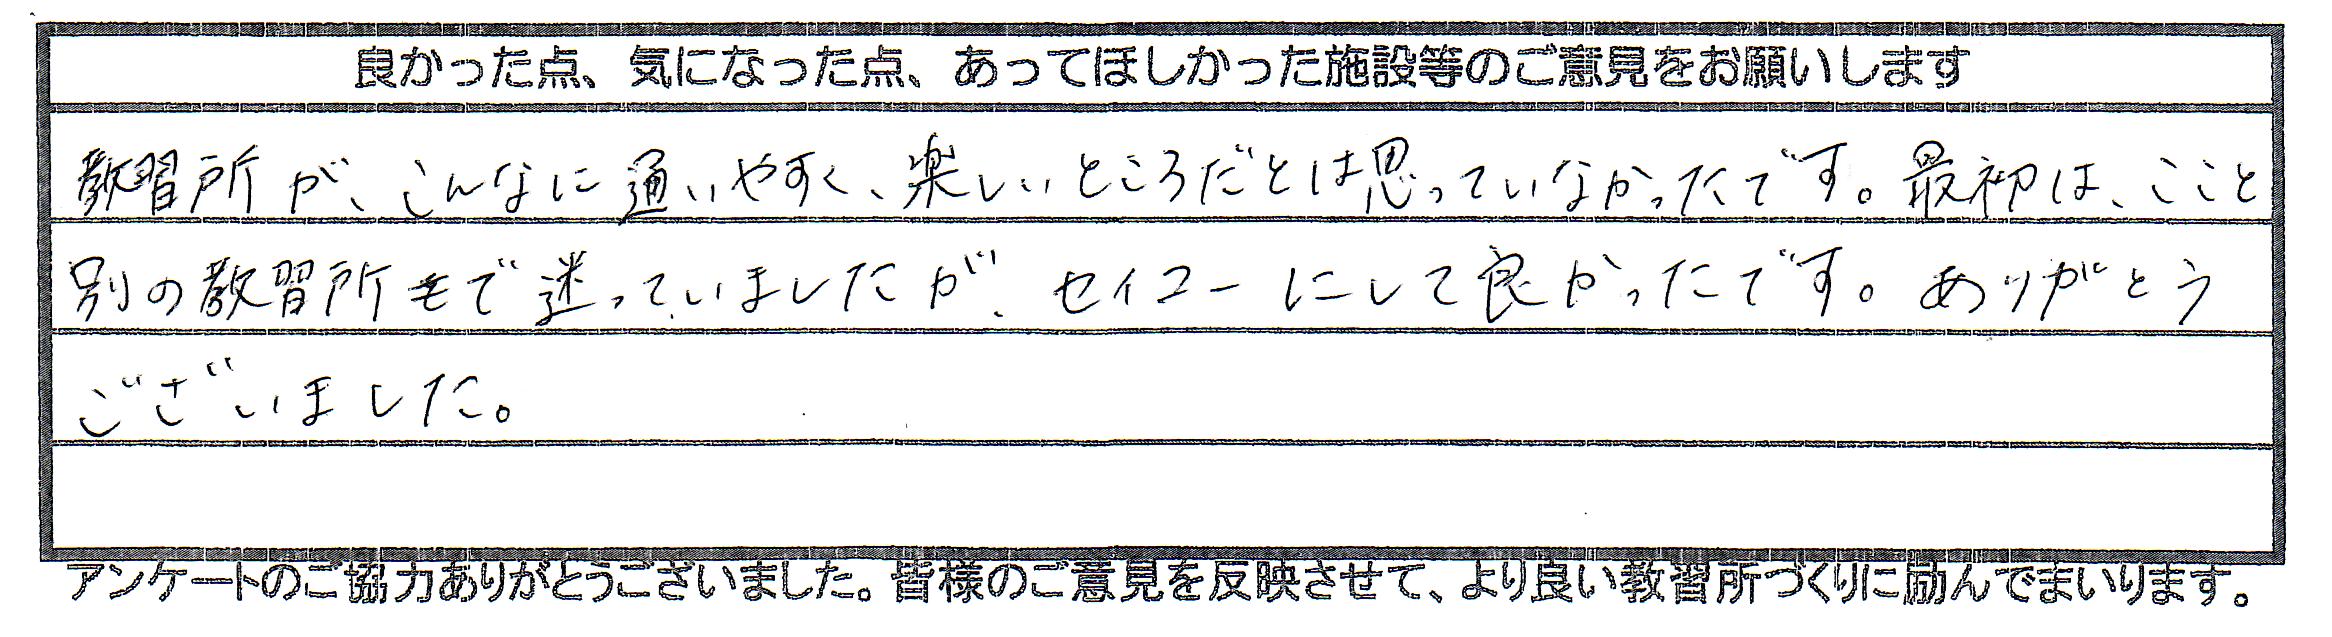 良かった点、気になった点、あってほしかった施設等のご意見をお願いします
教習所が、こんなに通いやすく、楽しいところだとは思っていなかったです。最初は、ここと
別の教習所もで迷っていましたが、セイコーにして良かったです。ありがとう
ございました。
アンケートのご協力ありがとうございました。皆様のご意見を反映させて、より良い教習所づくりに励んでまいります。